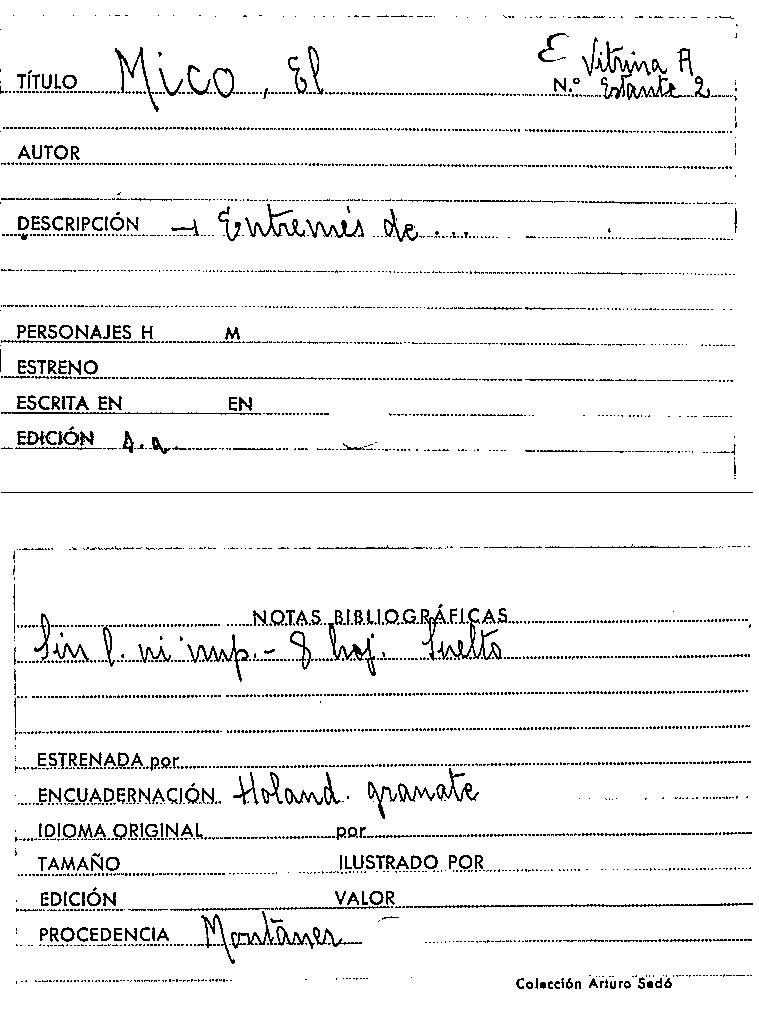 E Vitrina A
TÍTULO Mico, El N.º Estante 2
AUTOR
DESCRIPCIÓN → Entremés de...
PERSONAJES H M
ESTRENO
ESCRITA EN EN
EDICIÓN s.a.
NOTAS BIBLIOGRÁFICAS
Sin l. ni imp.- 8 hoj. Suelto
ESTRENADA por
ENCUADERNACIÓN Holand. granate
IDIOMA ORIGINAL por
TAMAÑO ILUSTRADO POR
EDICIÓN VALOR
PROCEDENCIA Montaner
Colección Arturo Sedó